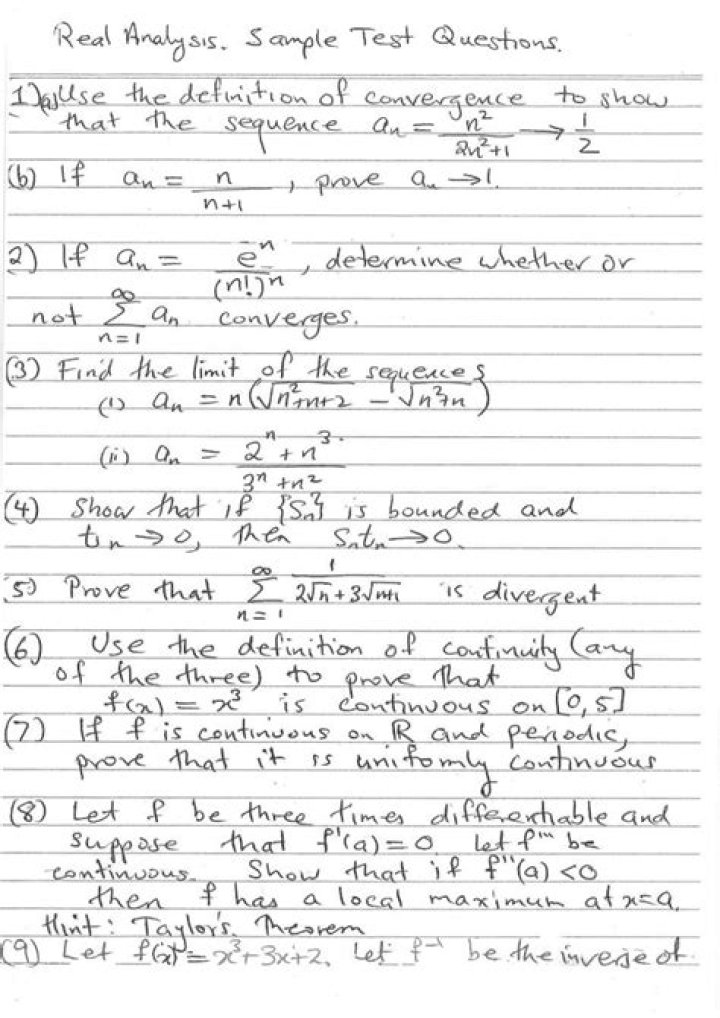 Real Analysis. Sample Test Questions.
1)(a) Use the definition of convergence to show
that the sequence aₙ = n²/(2n²+1) → 1/2
(b) If aₙ = n/(n+1), prove aₙ → 1.
2) If aₙ = e⁻ⁿ/(n!)ⁿ, determine whether or
not ∑_{n=1}^{∞} aₙ converges.
(3) Find the limit of the sequences
(i) aₙ = n(√(n²+n+2) - √(n²+n))
(ii) aₙ = (2ⁿ + n³)/(3ⁿ + n²)
(4) Show that if {Sₙ} is bounded and
tₙ → 0, then Sₙtₙ → 0.
5) Prove that ∑_{n=1}^{∞} 1/(2√n + 3√(n+1)) is divergent
(6) Use the definition of continuity (any
of the three) to prove that
f(x) = x³ is continuous on [0,5]
(7) If f is continuous on ℝ and periodic,
prove that it is uniformly continuous
(8) Let f be three times differentiable and
suppose that f'(a) = 0. Let f''' be
continuous. Show that if f''(a) < 0
then f has a local maximum at x=a.
Hint: Taylor's Theorem
(9) Let f(x) = x³+3x+2. Let f⁻¹ be the inverse of